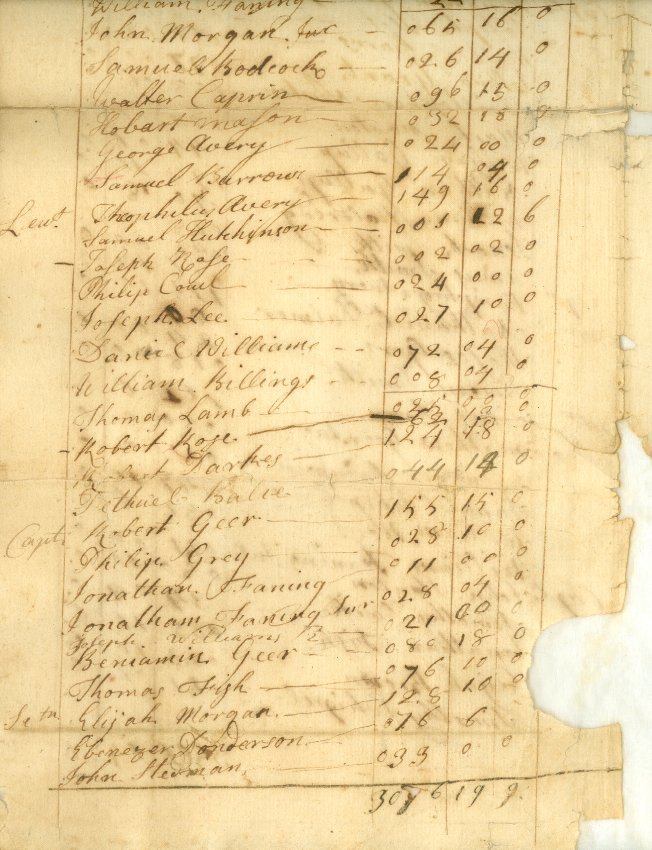 William Faning
John Morgan Jur 065 16 0
Samuel Bodcock 026 14 0
Walter Caprin 096 15 0
Hobart Mason 032 18
George Avery 024 00 0
Samuel Barrows 114 04 0
Leut Theophilus Avery 149 16 0
Samuel Hutchinson 001 12 6
Joseph Rose 002 02 0
Philip Coul 024 00 0
Joseph Lee 027 10 0
Daniel Williams 072 04 0
William Billings 008 04 0
Thomas Lamb
Robert Rose 124 18 0
Robert Darkes 044 0
Robert Geer 155 15 0
Capt Philip Grey 028 10 0
Jonathan Faning 011 00 0
Jonatham Faning Jur 028 04 0
Joseph Williams 2 021 00 0
Beniamin Geer 080 18 0
Thomas Fish 076 10 0
Elijah Morgan 128 10 0
Ebenezer Donderson 076 6
John Steman 033 0 0
3076 19 9